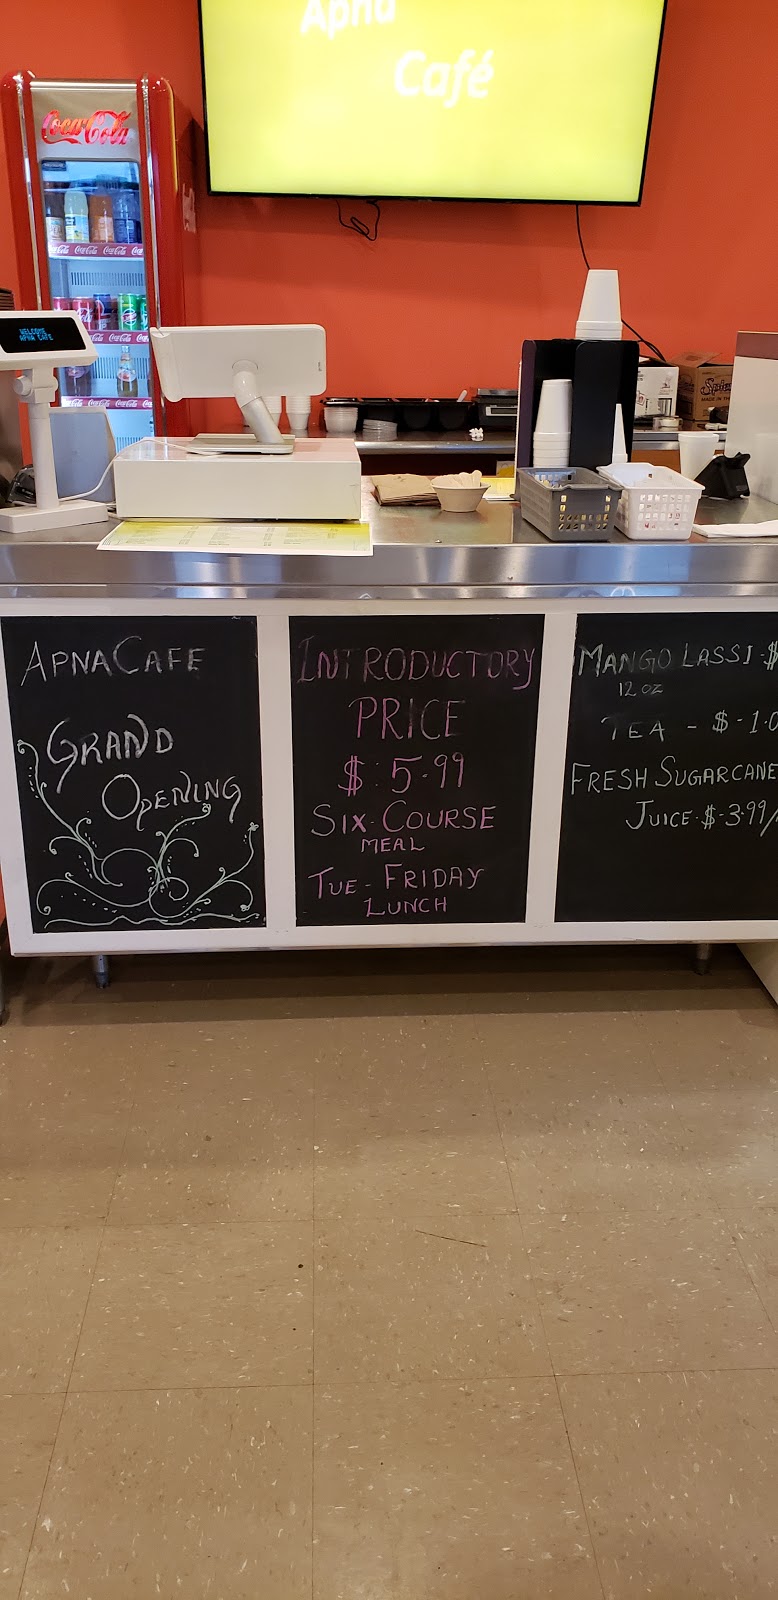 Apna
Café
Coca-Cola
Coca-Cola Coca-Cola Coca-Cola
WELCOME
APNA CAFE
APNA CAFE
GRAND
OPENING
INTRODUCTORY
PRICE
$ 5.99
SIX-COURSE
MEAL
TUE - FRIDAY
LUNCH
MANGO LASSI - $
12 OZ
TEA - $ - 1.0
FRESH SUGARCANE
JUICE - $ - 3.99/